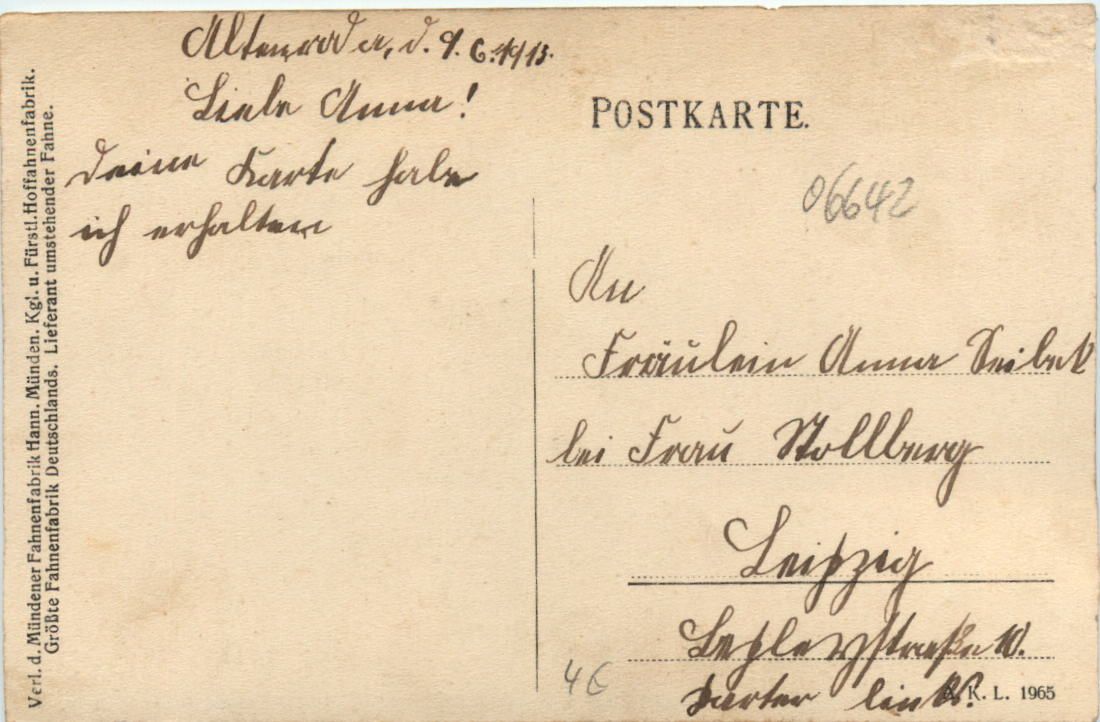 Verl. d. Mündener Fahnenfabrik Hann. Münden. Kgl. u. Fürstl. Hoffahnenfabrik.
Größte Fahnenfabrik Deutschlands. Lieferant umstehender Fahne.
d. 9. 6. 1913.
Liebe Anna!
Deine Karte habe
ich erhalten
POSTKARTE.
06642
An
Fräulein Anna Seibek
bei Frau Stollberg
Leipzig
10.
Parter links.
A. K. L. 1965
4€